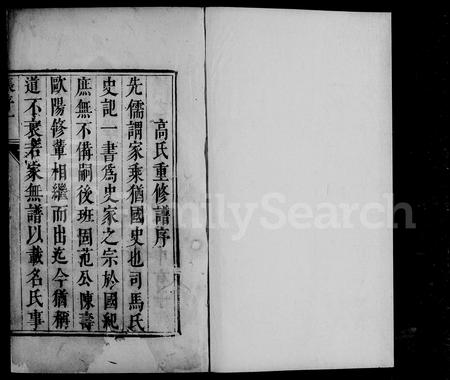 高氏重修譜序
先儒謂家乘猶國史也司馬氏
史記一書為史家之宗於國紀
庶無不備嗣後班固范公陳壽
歐陽修輩相繼而出迄今猶稱
道不衰若家無譜以載名氏事
FamilySearch